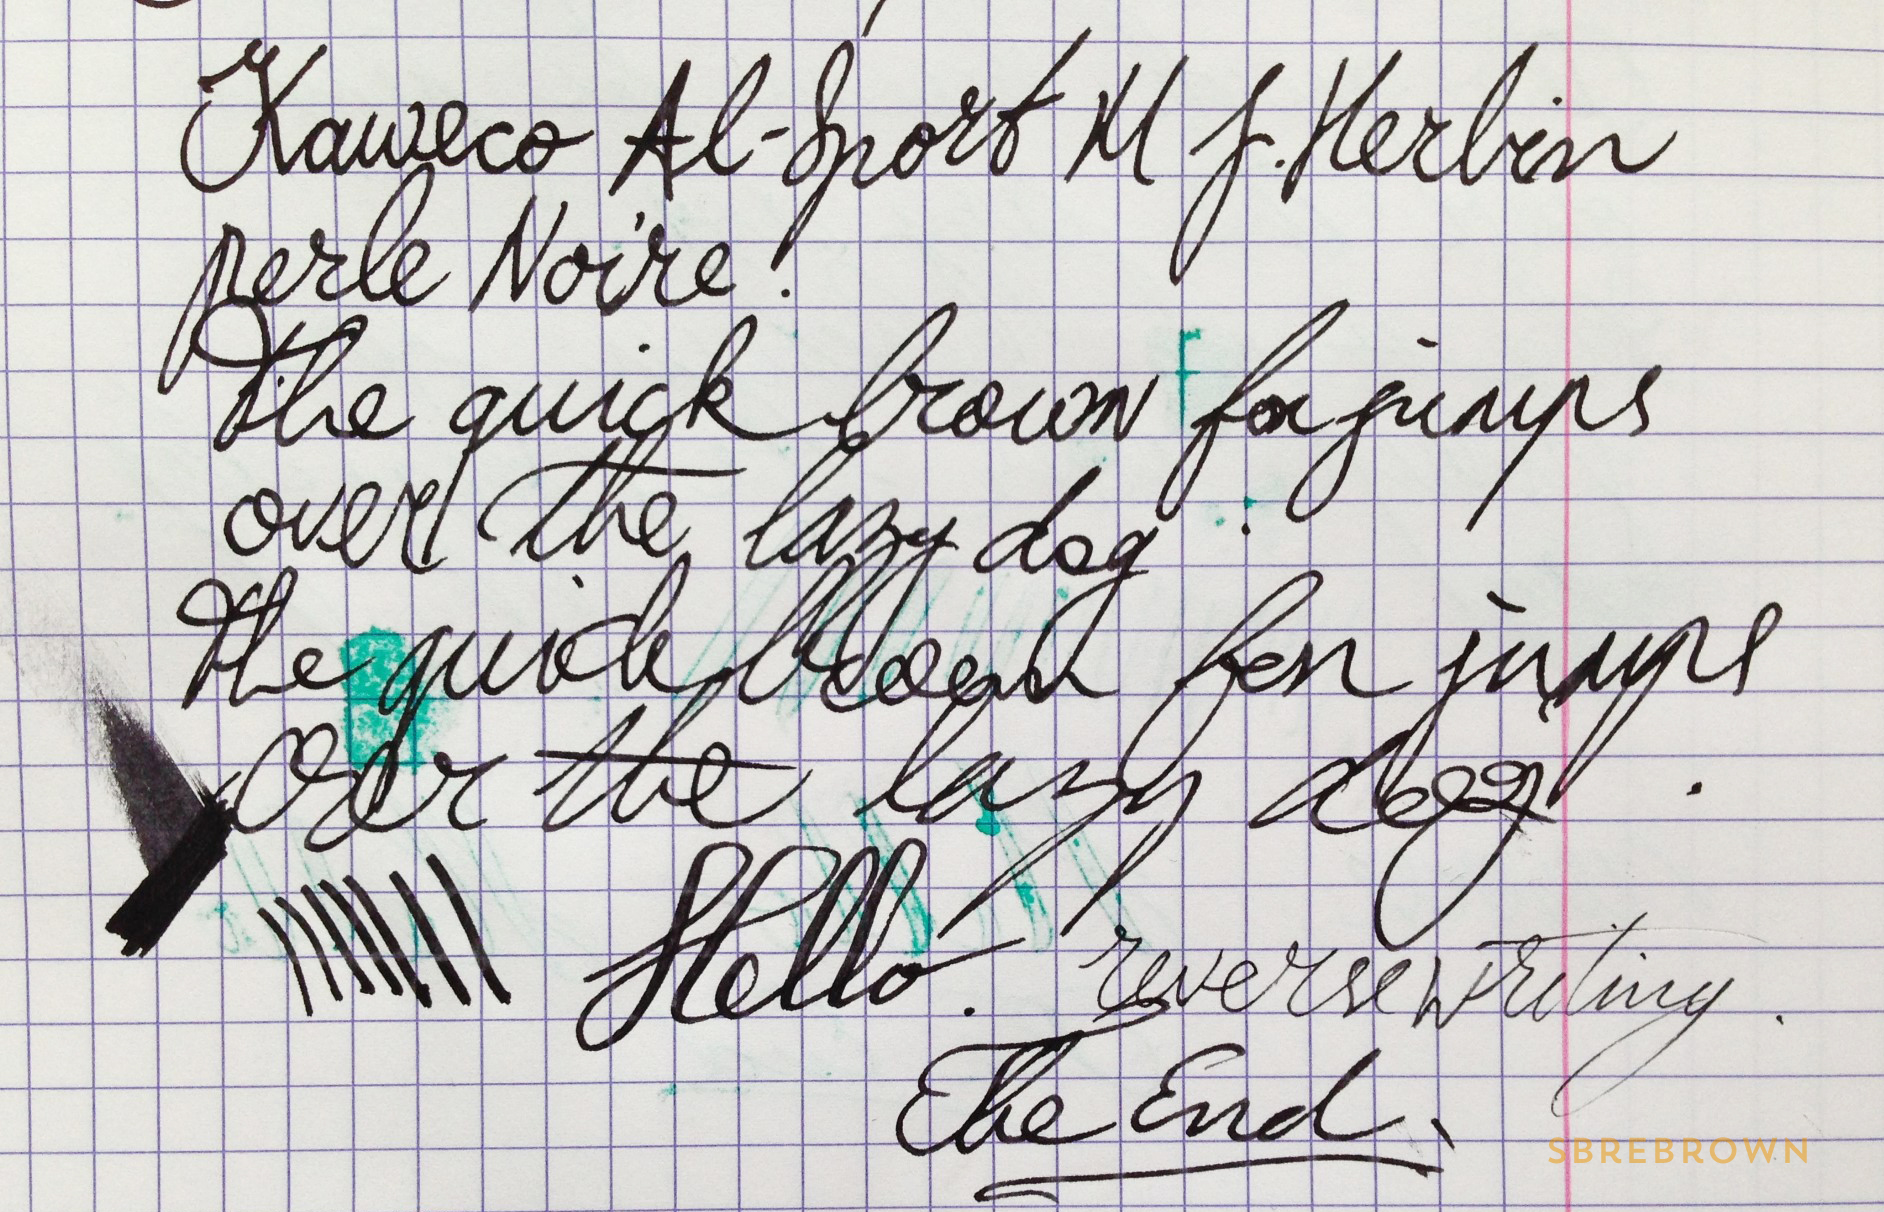 Kaweco Al-Sport M J. Herbin
perle Noire.
The quick brown fox jumps
over the lazy dog.
The quick brown fox jumps
over the lazy dog.
Hello. reverse writing.
The End.
SBREBROWN